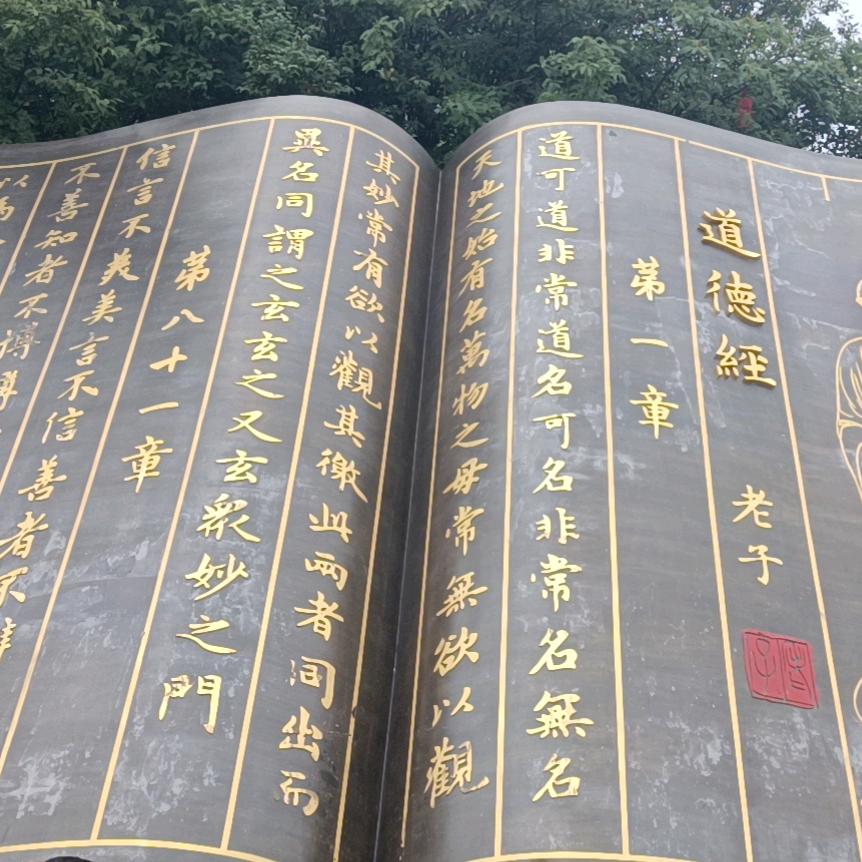 道德經 老子
老子
第一章
道可道非常道名可名非常名無名
天地之始有名萬物之母常無欲以觀
其妙常有欲以觀其徼此兩者同出而
異名同謂之玄玄之又玄眾妙之門
第八十一章
信言不美美言不信善者不
不善知者不博博
以為